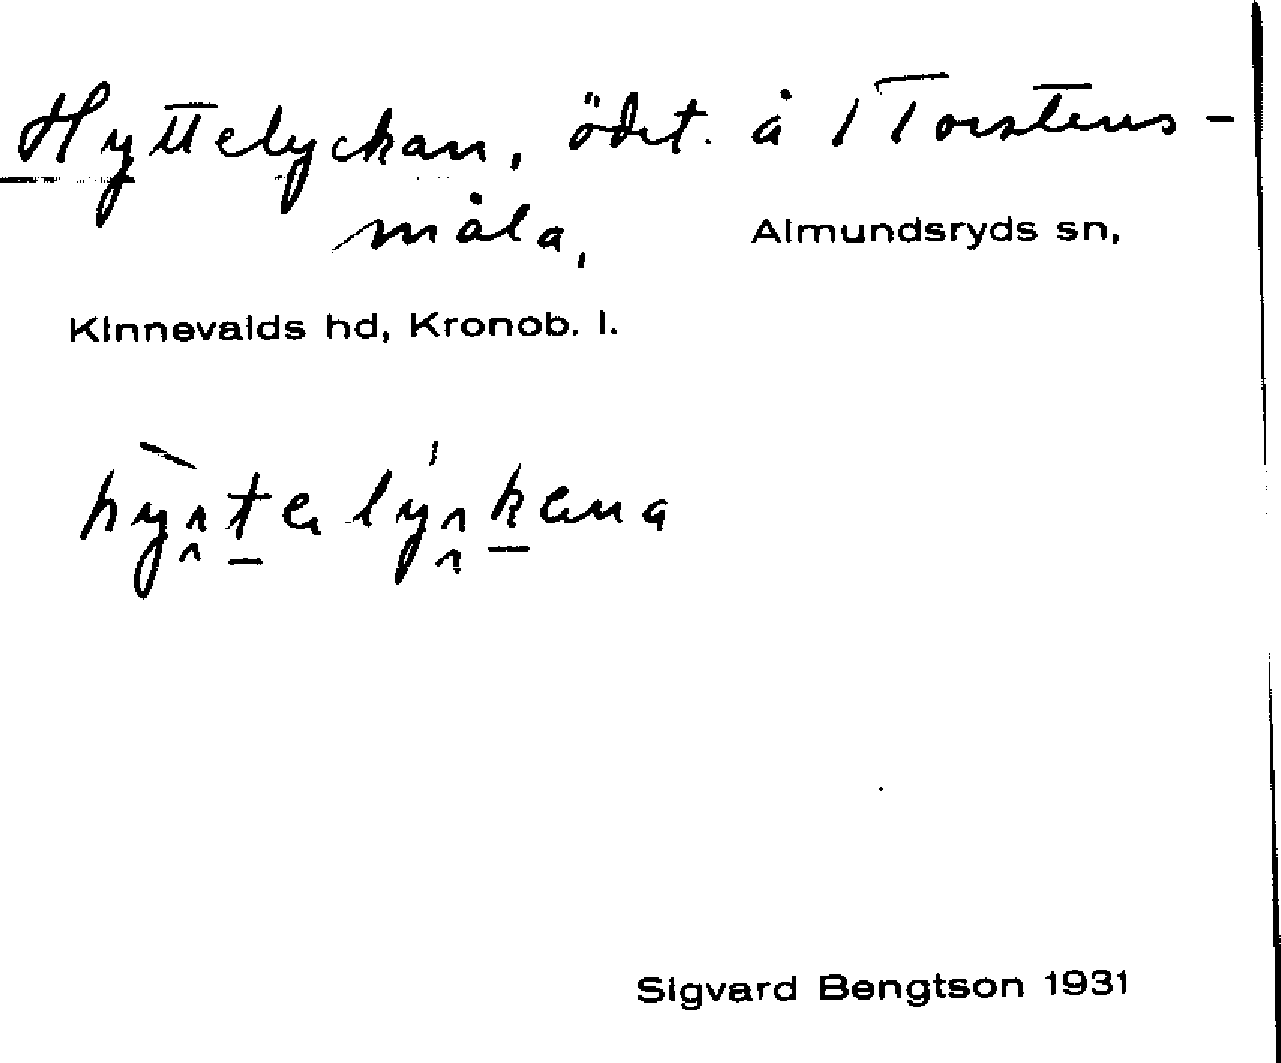 Hyttelyckan, ödet. å 1 Torstens-
måla, Almundsryds sn,
Kinnevalds hd, Kronob. l.
Sigvard Bengtson 1931